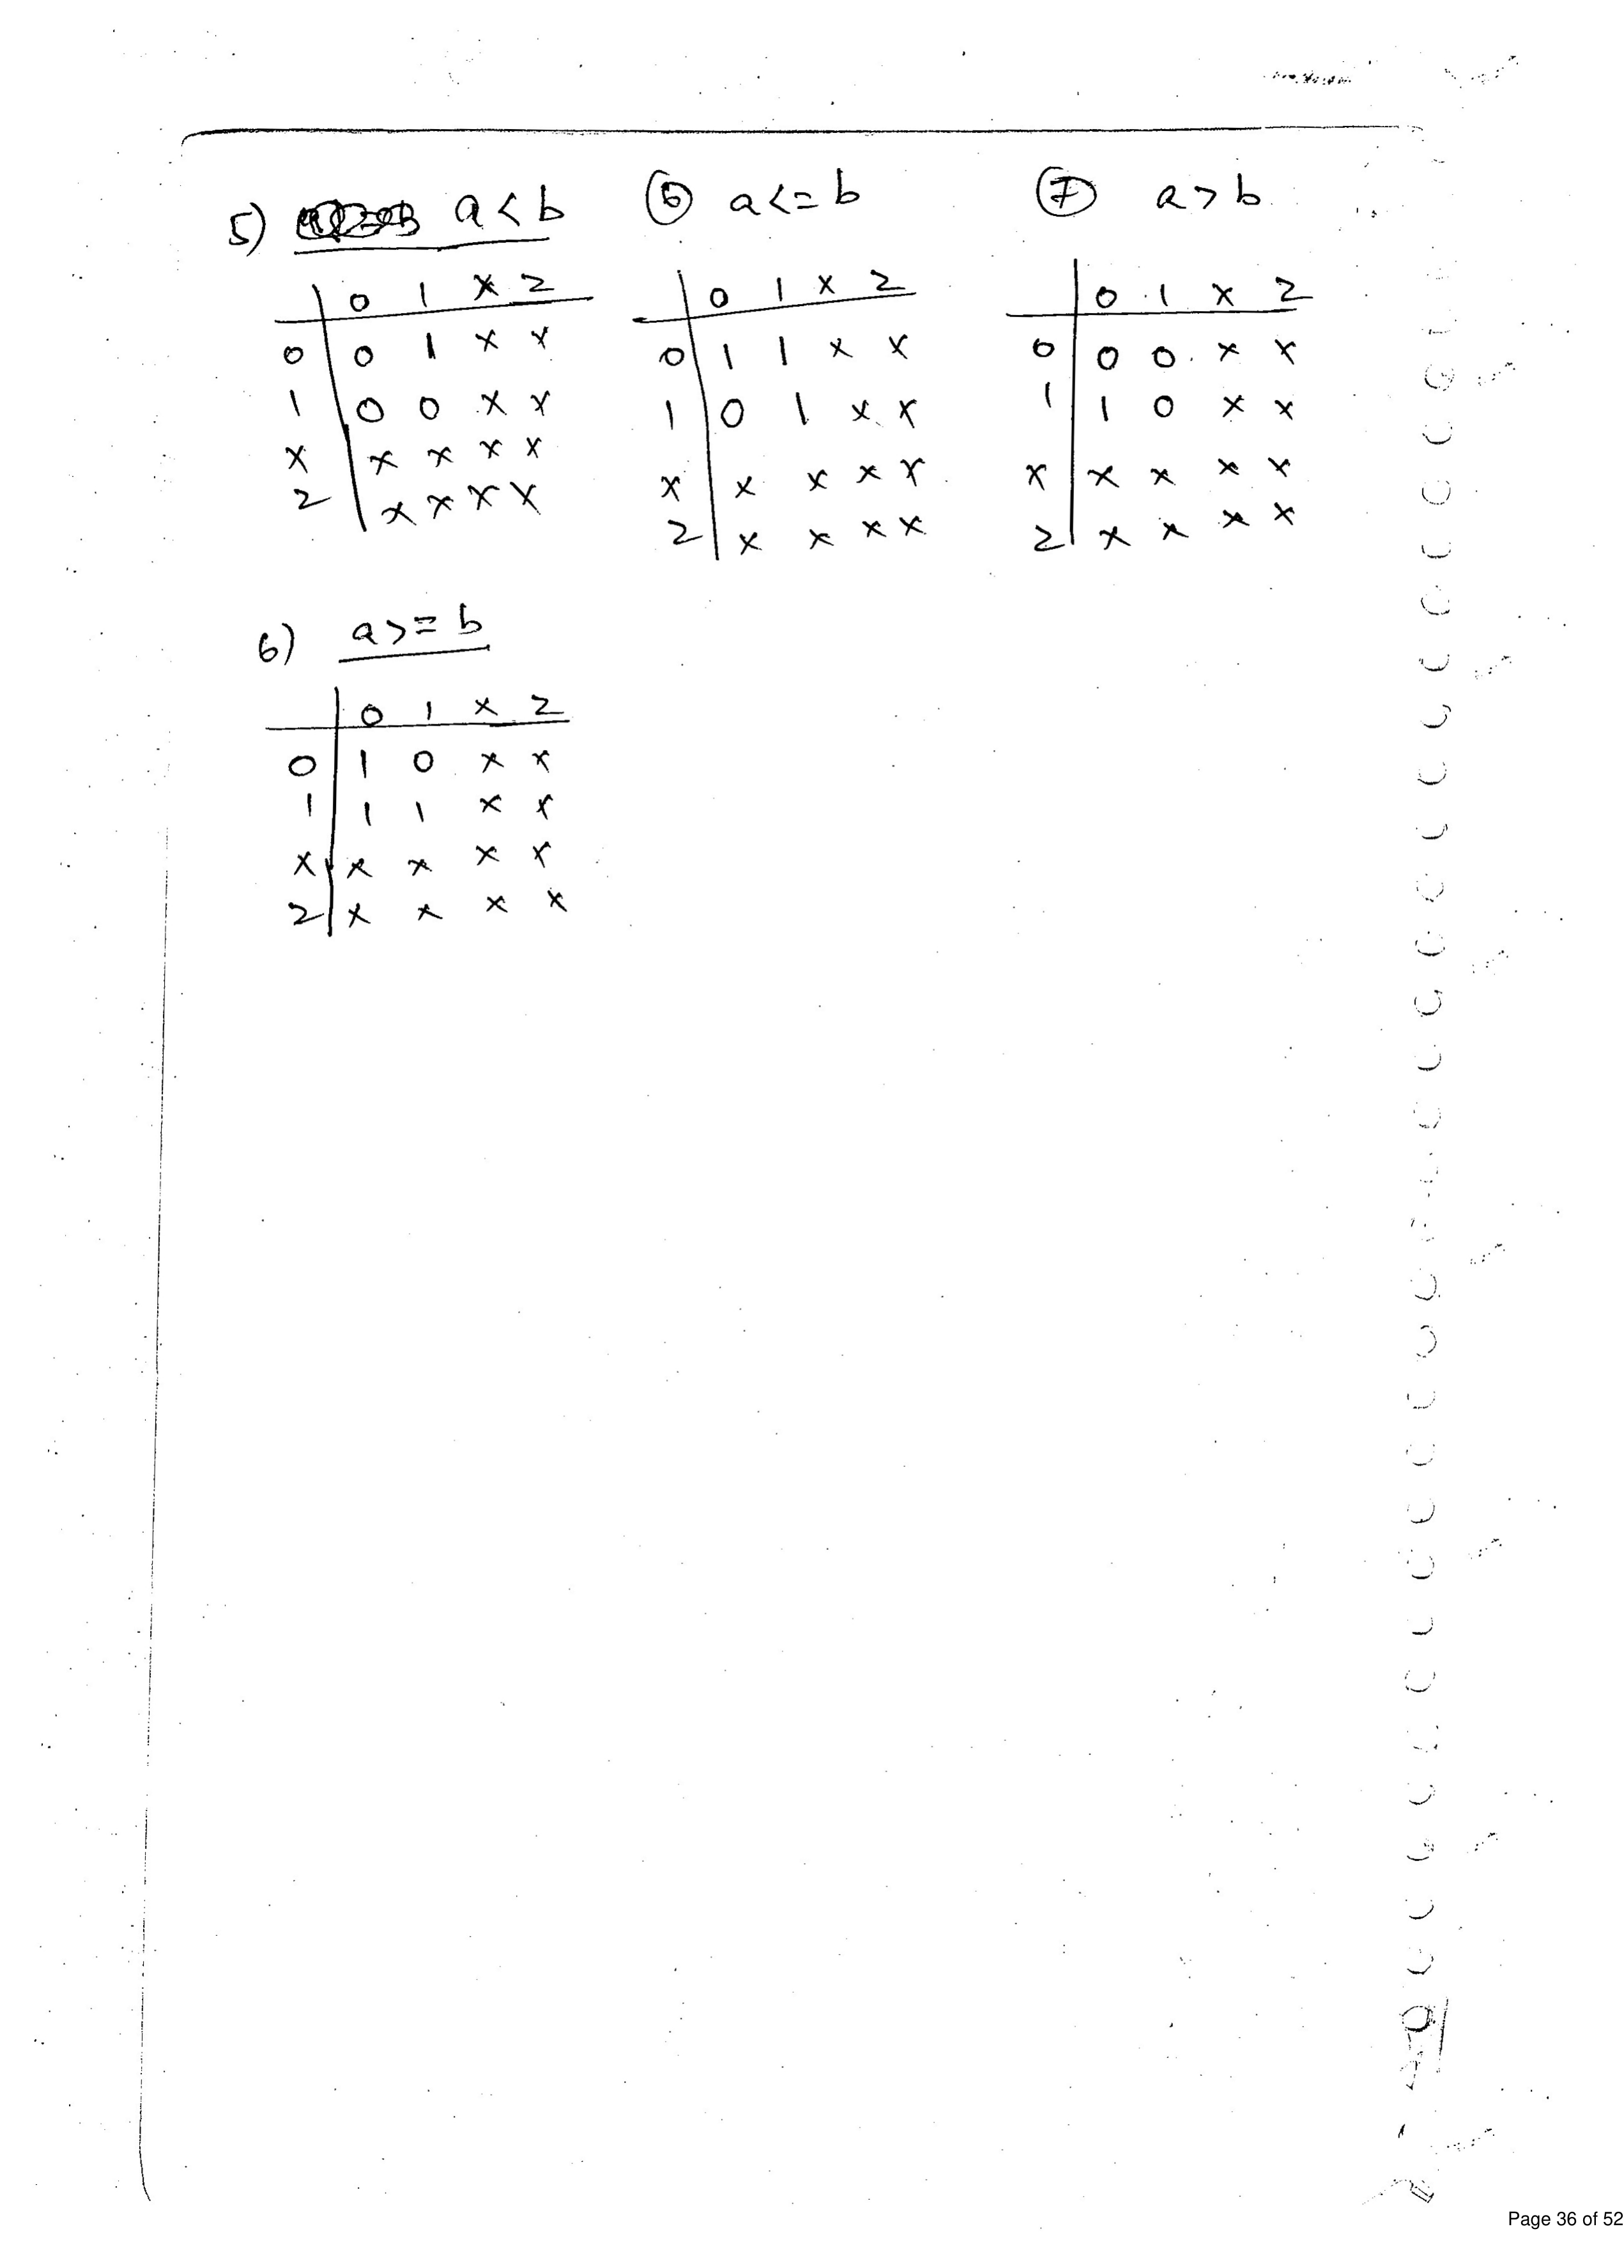 5) a < b
0 1 x 2
0 0 1 x x
1 0 0 x x
x x x x x
2 x x x x
6 a <= b
0 1 x 2
0 1 1 x x
1 0 1 x x
x x x x x
2 x x x x
7 a > b
0 1 x 2
0 0 0 x x
1 1 0 x x
x x x x x
2 x x x x
6) a >= b
0 1 x 2
0 1 0 x x
1 1 1 x x
x x x x x
2 x x x x
Page 36 of 52